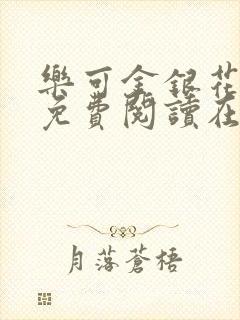 樂可金銀花
免費閱讀在
月落蒼梧